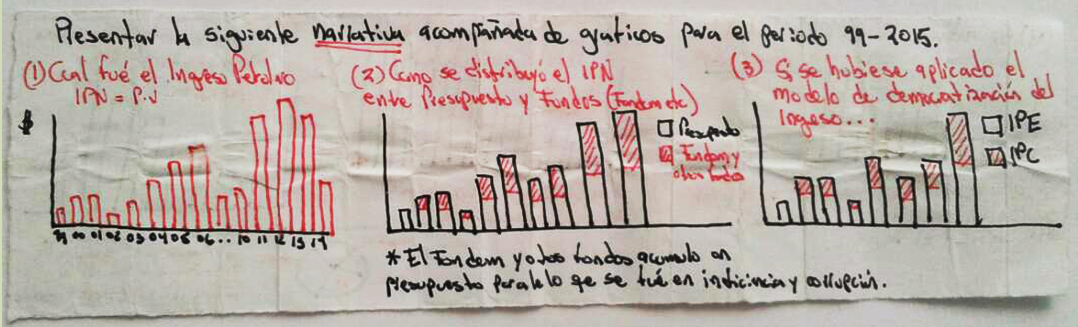 Presentar la siguiente narrativa acompañada de graficos para el periodo 99-2015.
(1) Cual fué el Ingreso Petrolero
IPN = P.V
(2) Como se distribuyó el IPN
entre Presupuesto y Fondos (Fondem etc)
(3) Si se hubiese aplicado el
modelo de democratización del
Ingreso...
$
Presupuesto
Fondem y
otros fondos
IPE
IPC
99 00 01 02 03 04 05 06 .. 10 11 12 13 14
* El Fondem y otros fondos acumulo un
presupuesto paralelo qe se fué en ineficiencia y corrupción.